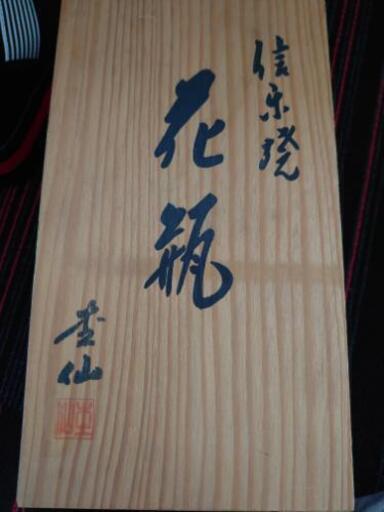 信楽焼
花瓶
仙